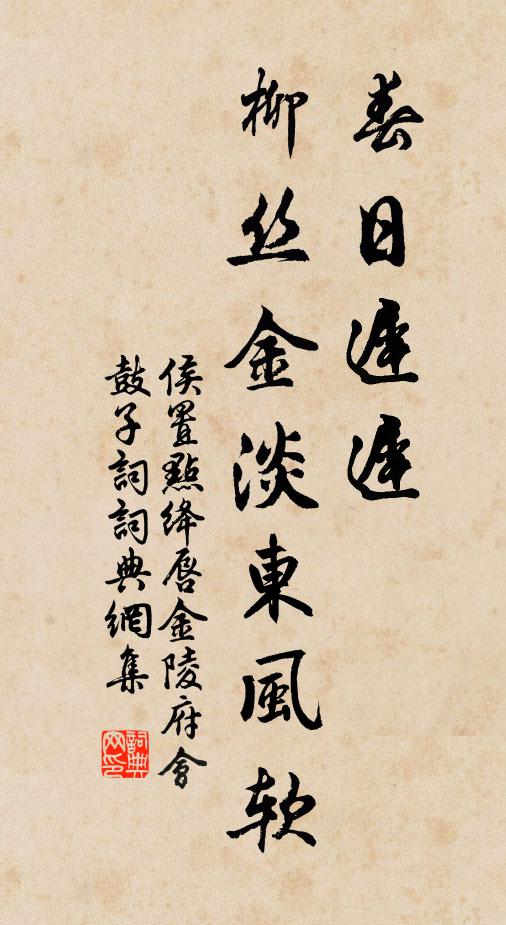 春日遲遲
柳丝金淡東風软
侯置點绛唇金陵府會
鼓子詞詞典網集
詞典网印